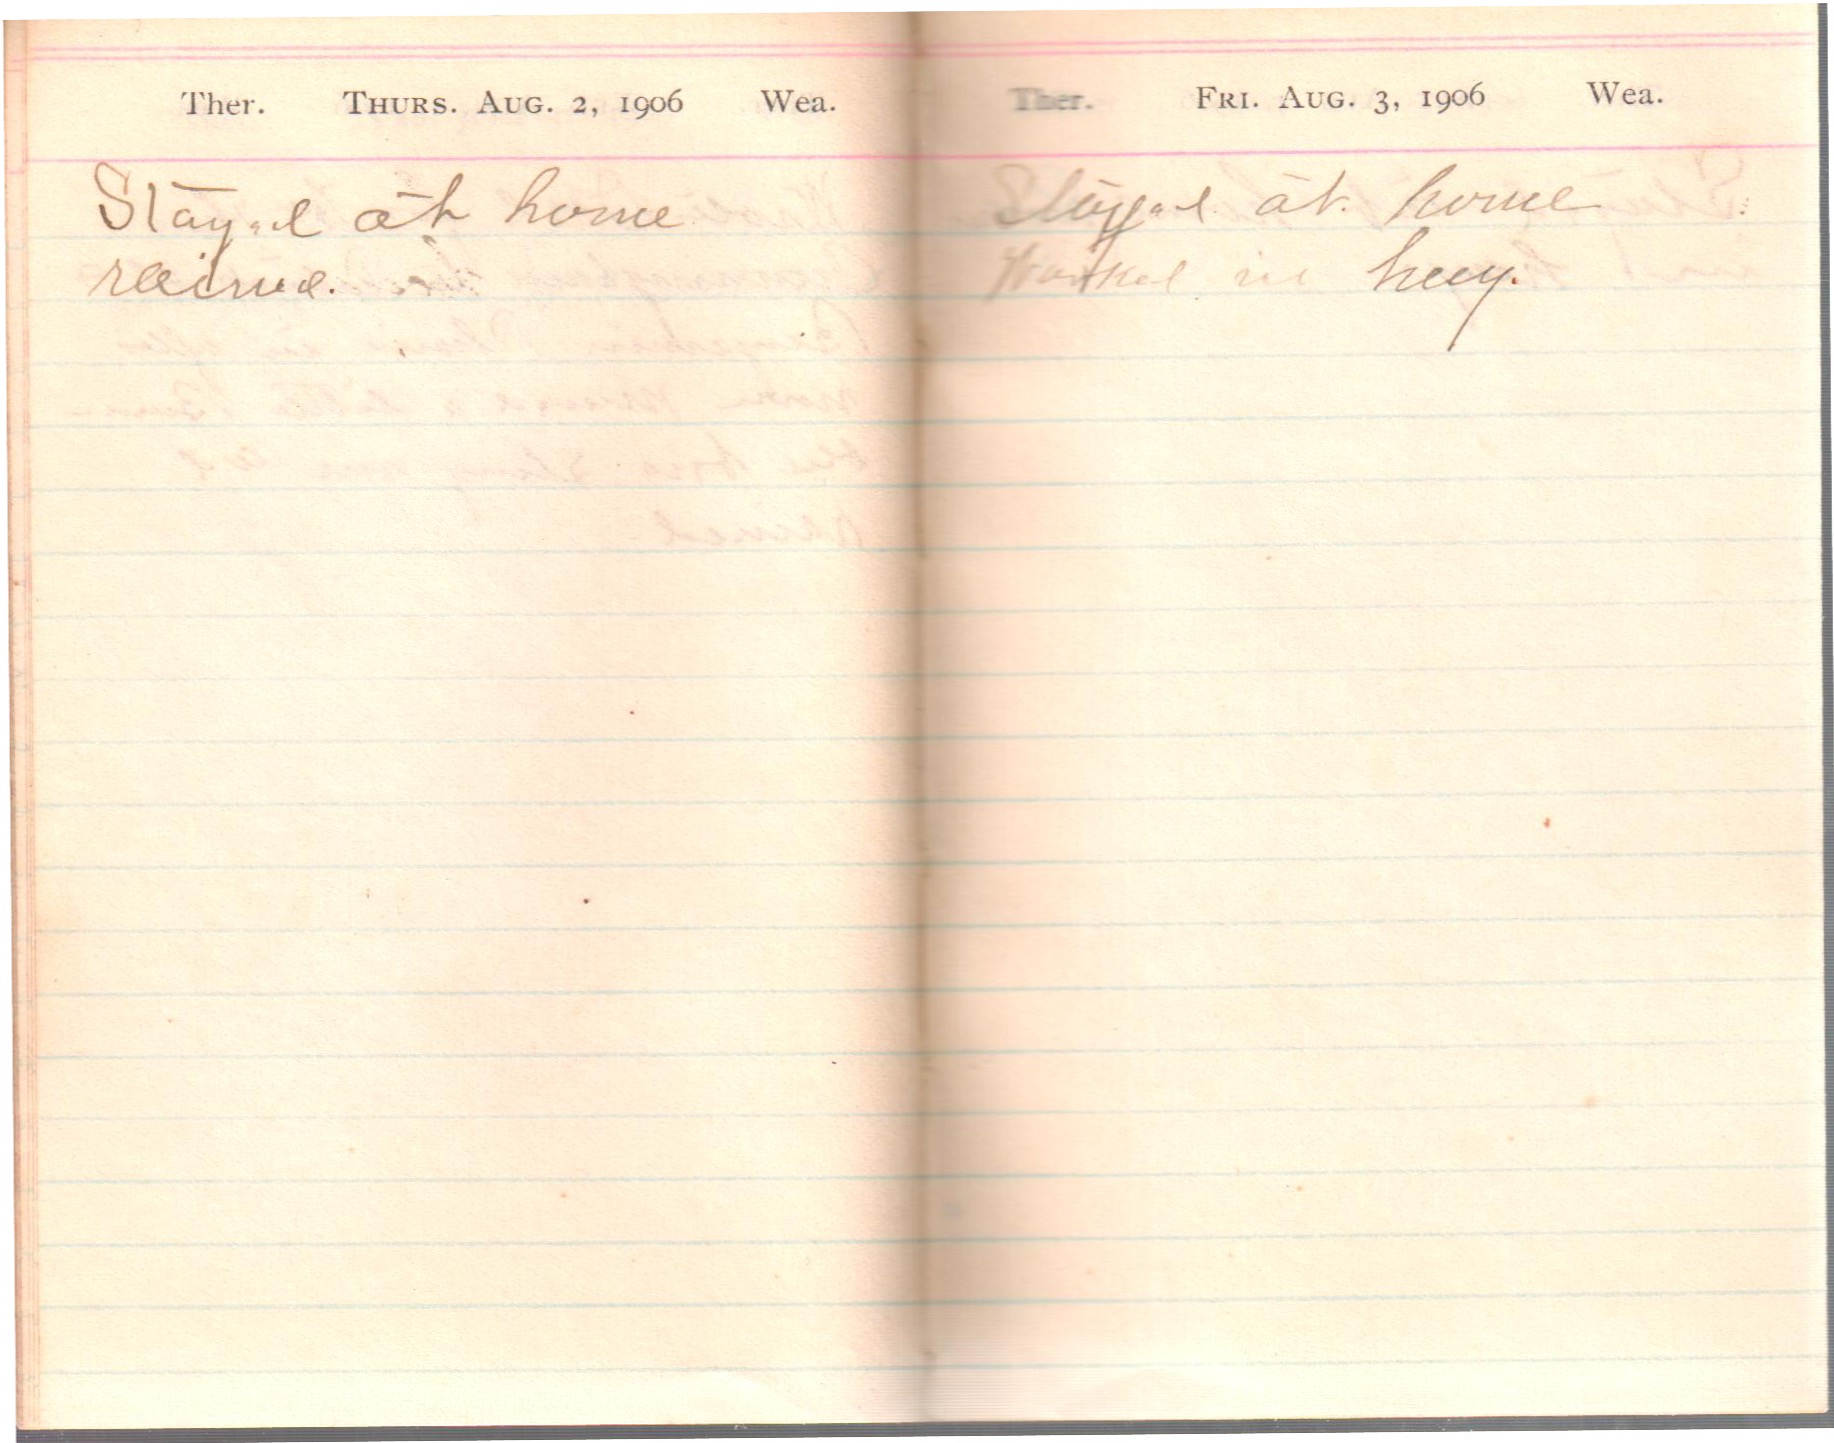 Ther. Thurs. Aug. 2, 1906 Wea.
Stayed at home
rained.
Ther. Fri. Aug. 3, 1906 Wea.
Stayed at home
Worked in hay.